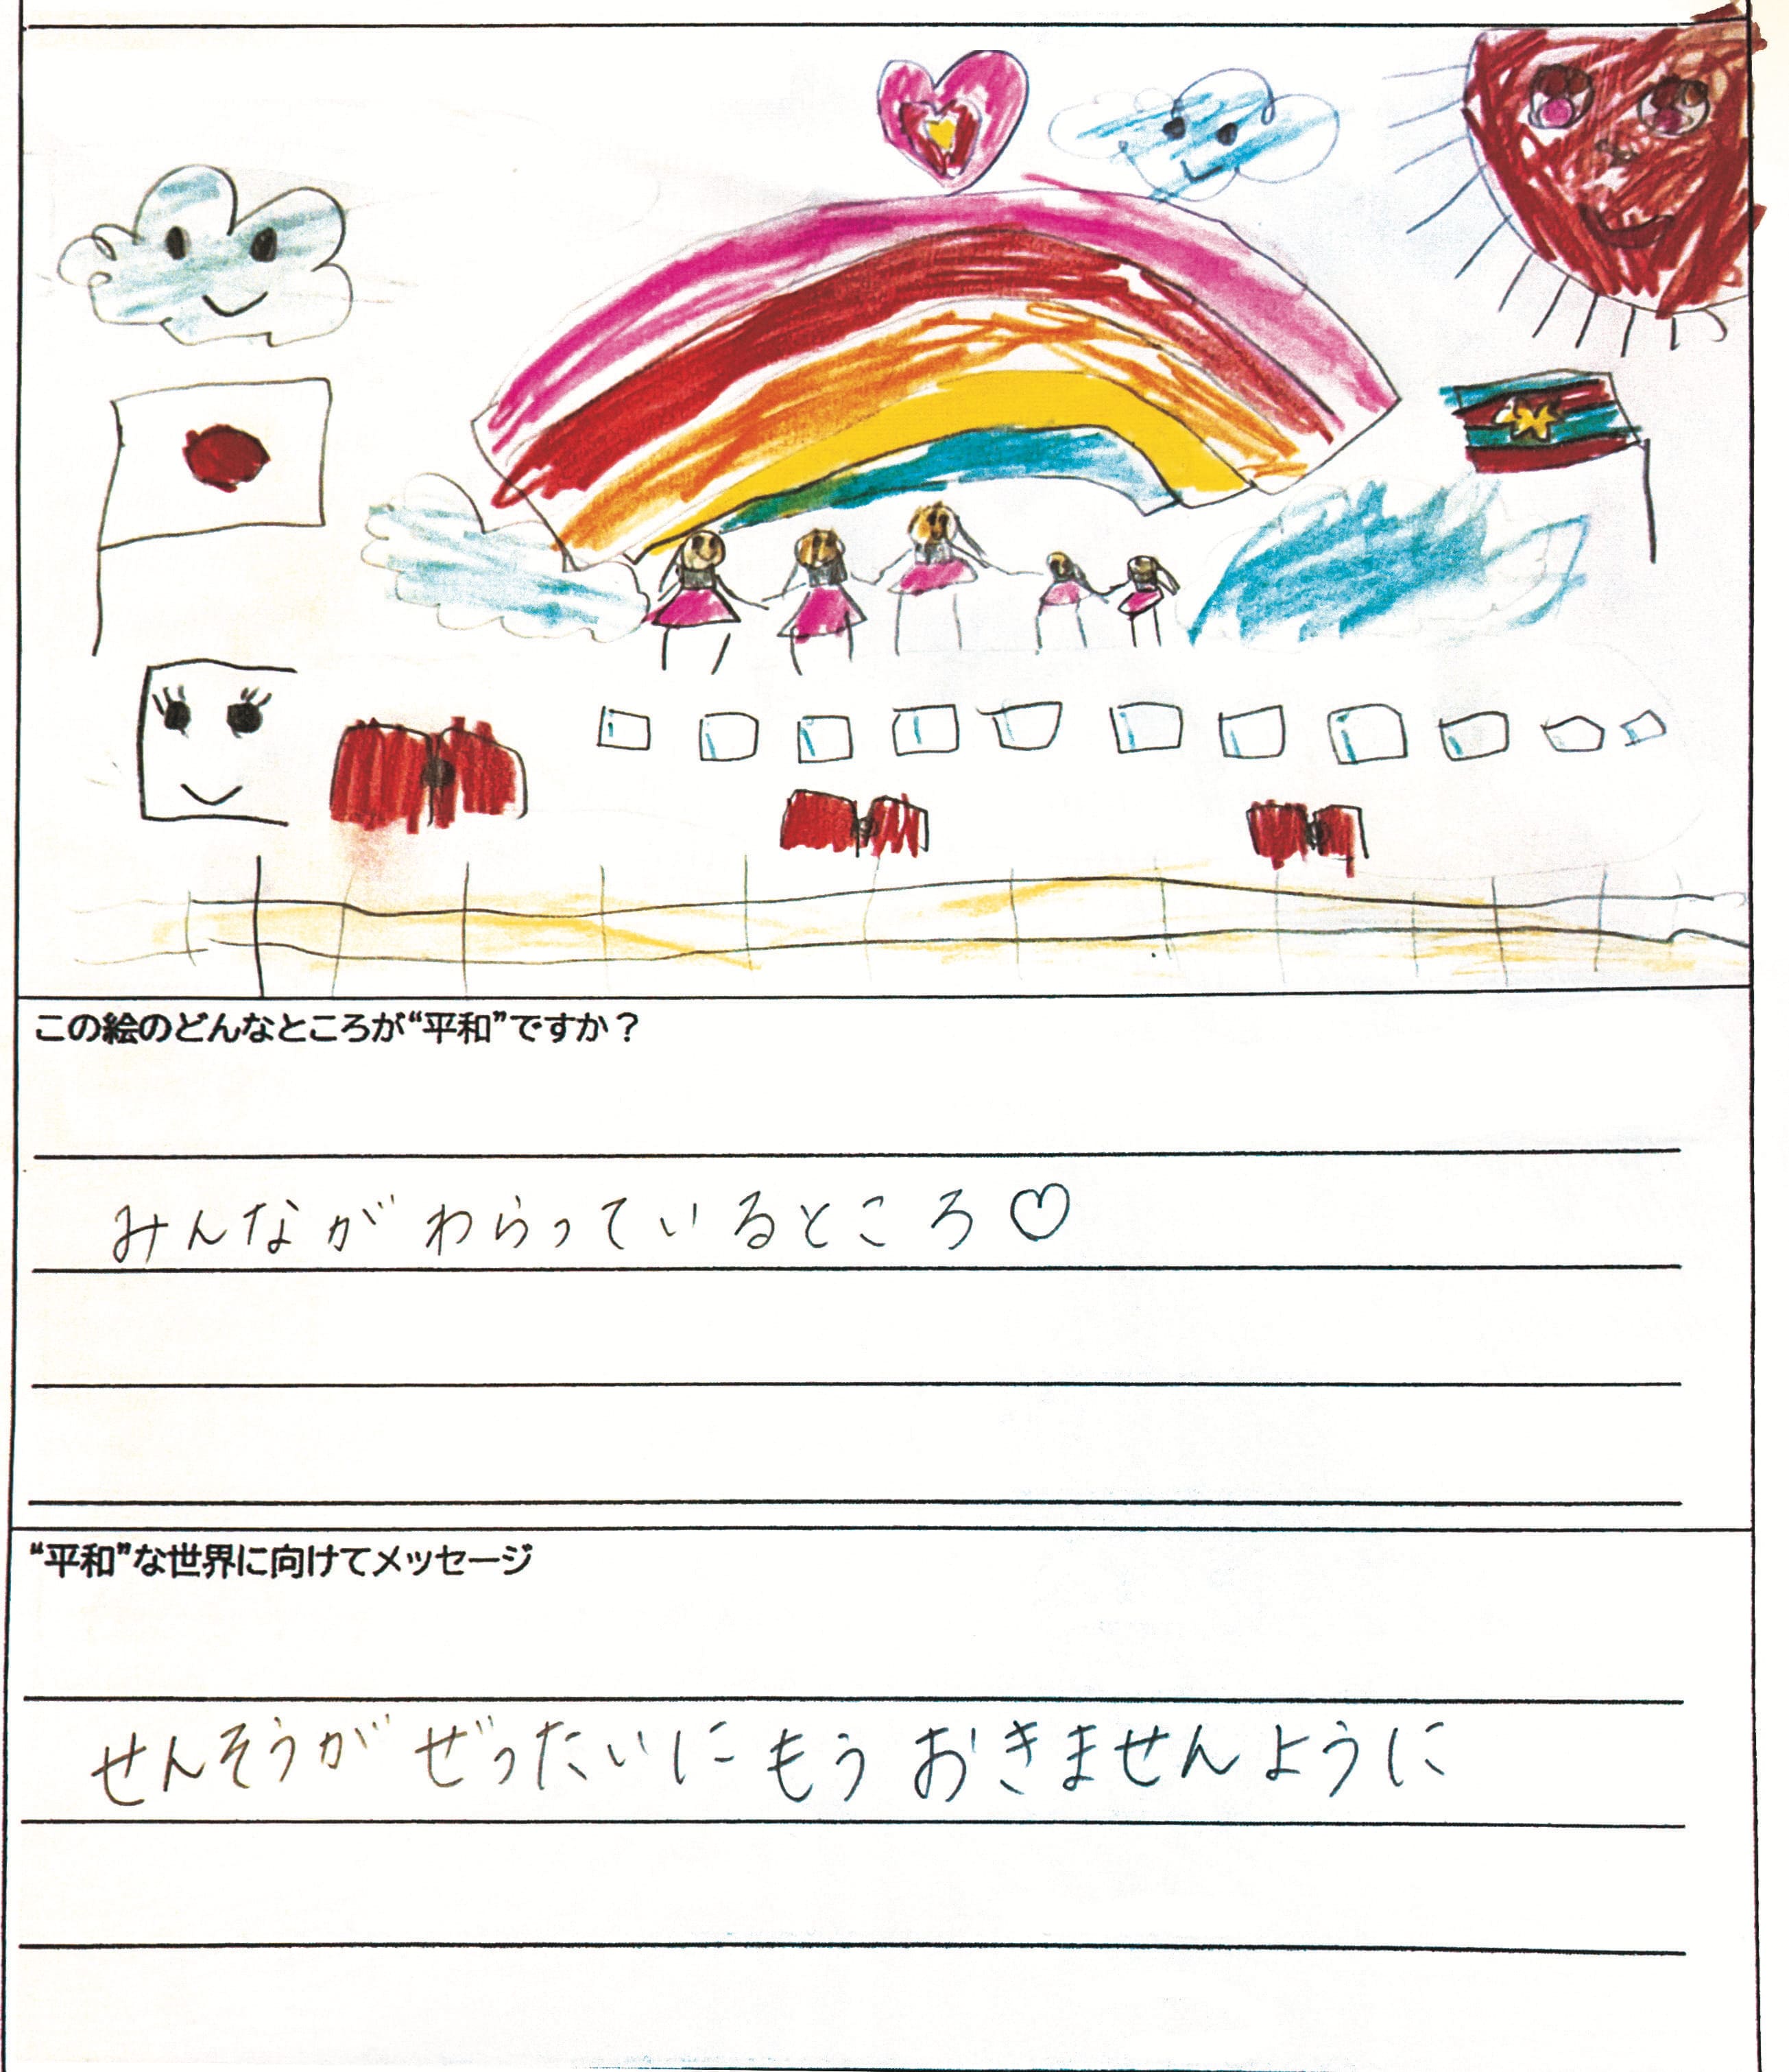 この絵のどんなところが“平和”ですか？
みんながわらっているところ♡
“平和”な世界に向けてメッセージ
せんそうが ぜったいに もう おきませんように